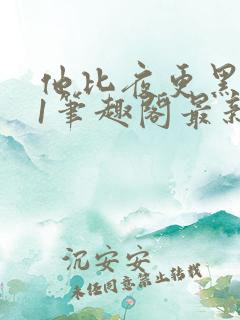 他比夜更黑
1笔趣阁最新
沉安安
未经同意禁止转载